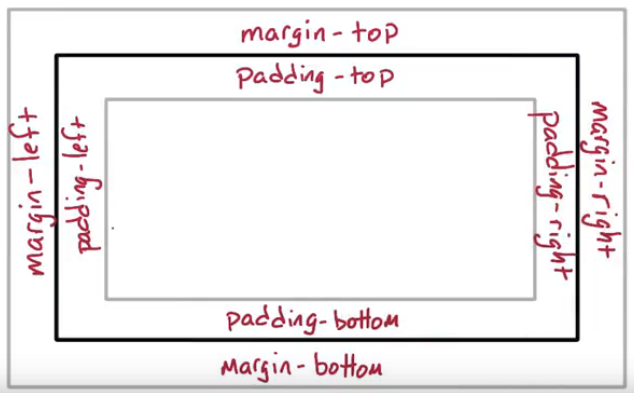 margin-top
padding-top
margin-left
padding-left
padding-right
margin-right
padding-bottom
margin-bottom